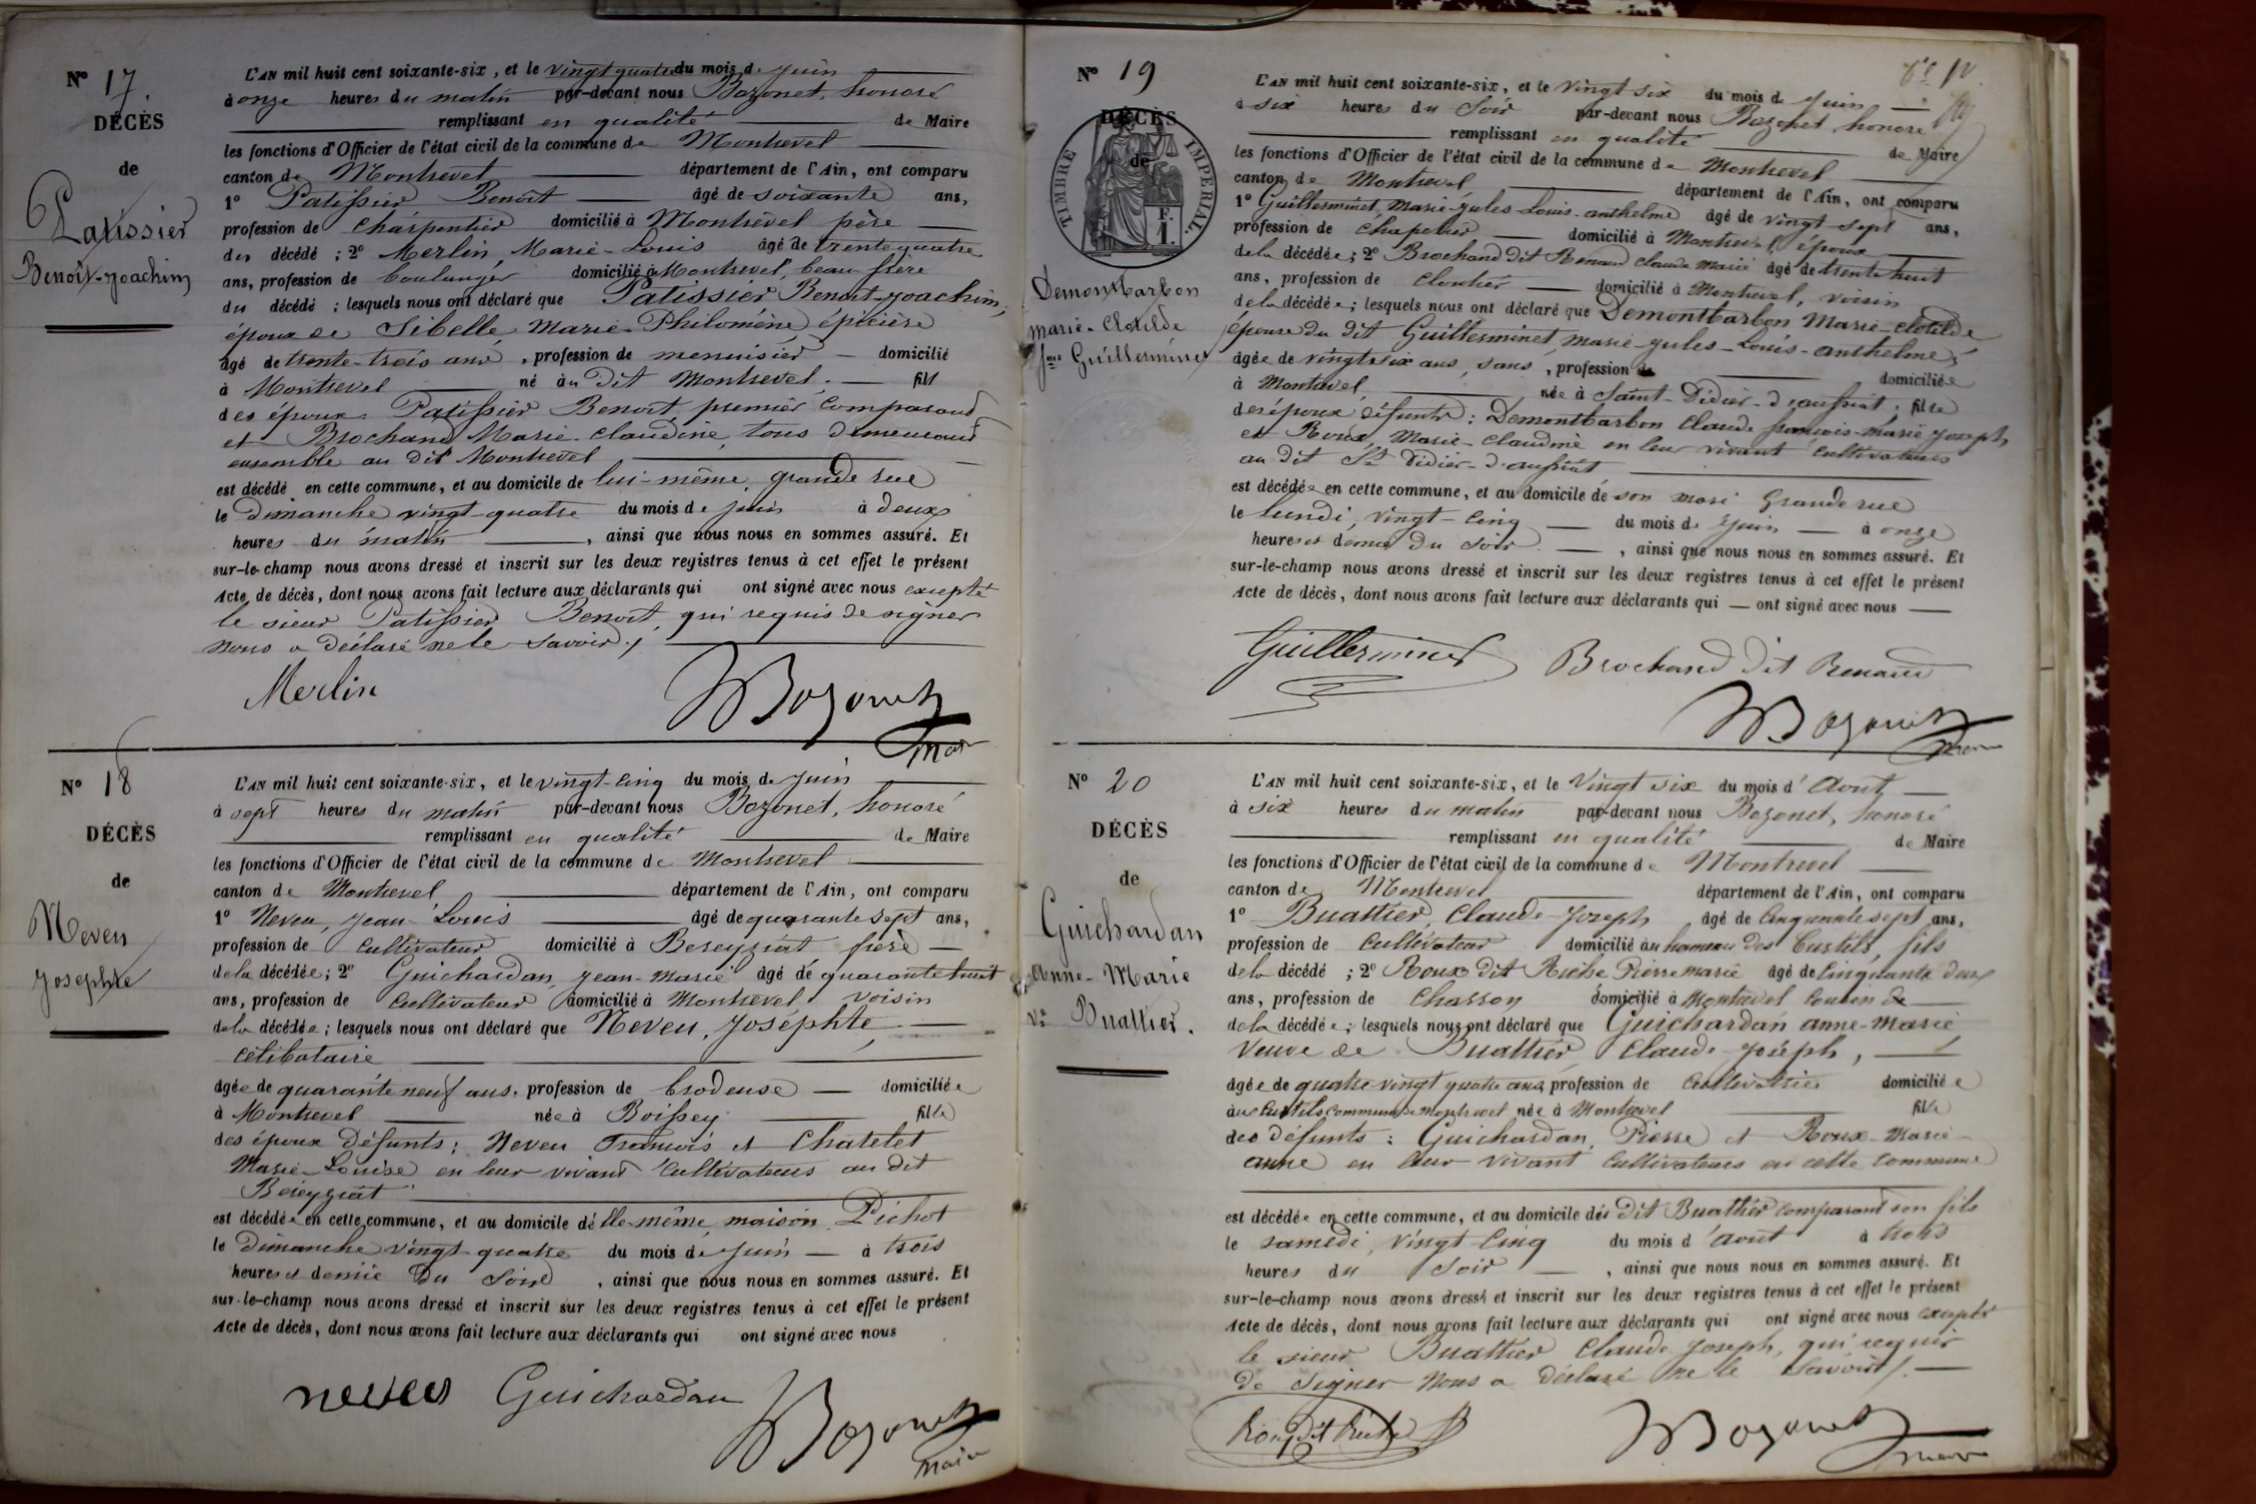 Nº 17.
DÉCÈS
de
Patissier
Benoît-Joachim
L'AN mil huit cent soixante-six, et le vingt quatre du mois de juin
à onze heures du matin par-devant nous Bozonet, honoré
remplissant en qualité de Maire
les fonctions d'Officier de l'état civil de la commune de Montrevel
canton de Montrevel département de l'Ain, ont comparu
1º Patissier Benoit âgé de soixante ans,
profession de charpentier domicilié à Montrevel père
du décédé ; 2º Merlin, Marie-Louis âgé de trente quatre
ans, profession de boulanger domicilié à Montrevel, beau frère
du décédé ; lesquels nous ont déclaré que Patissier Benoit-Joachim,
époux de Sibelle, Marie-Philomène, épicière
âgé de trente-trois ans, profession de menuisier domicilié
à Montrevel né au dit Montrevel. fils
des époux Patissier Benoit, premier comparant
et Brochand Marie-Claudine, tous demeurant
ensemble au dit Montrevel
est décédé en cette commune, et au domicile de lui-même, grande rue
le dimanche vingt-quatre du mois de juin à deux
heures du matin, ainsi que nous nous en sommes assuré. Et
sur-le-champ nous avons dressé et inscrit sur les deux registres tenus à cet effet le présent
Acte de décès, dont nous avons fait lecture aux déclarants qui ont signé avec nous excepté
le sieur Patissier Benoit, qui requis de signer
nous a déclaré ne le savoir ./
Merlin Bozonet
maire
Nº 18
DÉCÈS
de
Neveu
Josephte
L'AN mil huit cent soixante-six, et le vingt-cinq du mois de juin
à sept heures du matin par-devant nous Bozonet, honoré
remplissant en qualité de Maire
les fonctions d'Officier de l'état civil de la commune de Montrevel
canton de Montrevel département de l'Ain, ont comparu
1º Neveu, Jean-Louis âgé de quarante sept ans,
profession de cultivateur domicilié à Bereyziat frère
de la décédée; 2º Guichardan, Jean-Marie âgé de quarante huit
ans, profession de cultivateur domicilié à Montrevel voisin
de la décédée; lesquels nous ont déclaré que Neveu, Joséphte,
célibataire
âgée de quarante neuf ans, profession de brodeuse domiciliée
à Montrevel née à Boissey fille
des époux défunts: Neveu François et Chatelet
Marie-Louise en leur vivant cultivateurs au dit
Bereyziat
est décédée en cette commune, et au domicile d'elle-même, maison Pichot
le dimanche vingt-quatre du mois de juin à trois
heures et demie du soir, ainsi que nous nous en sommes assuré. Et
sur-le-champ nous avons dressé et inscrit sur les deux registres tenus à cet effet le présent
Acte de décès, dont nous avons fait lecture aux déclarants qui ont signé avec nous
neveu Guichardan Bozonet
maire
Nº 19
DÉCÈS
de
TIMBRE IMPÉRIAL.
F. I.
Demontbarbon
Marie-Clotilde
fme Guillerminet
L'AN mil huit cent soixante-six, et le vingt six du mois de juin
à six heures du soir par-devant nous Bozonet, honoré
remplissant en qualité de Maire
les fonctions d'Officier de l'état civil de la commune de Montrevel
canton de Montrevel, département de l'Ain, ont comparu
1º Guillerminet, Marie-Jules-Louis-anthelme âgé de vingt-sept ans,
profession de chapelier domicilié à Montrevel, époux
de la décédée; 2º Brochand dit Renaud Claude Marie âgé de trente huit
ans, profession de cloutier domicilié à Montrevel, voisin
de la décédée; lesquels nous ont déclaré que Demontbarbon Marie-Clotilde
épouse du dit Guillerminet, Marie-Jules-Louis-anthelme,
âgée de vingt-six ans, sans, profession domiciliée
à Montrevel, née à Saint-Didier-d'aussiat, fille
des époux défunts: Demontbarbon Claude François-Marie Joseph
et Roux, Marie-Claudine en leur vivant cultivateurs
au dit St Didier-d'aussiat
est décédée en cette commune, et au domicile de son mari Grande rue
le lundi, vingt-cinq du mois de juin à onze
heures et demie du soir, ainsi que nous nous en sommes assuré. Et
sur-le-champ nous avons dressé et inscrit sur les deux registres tenus à cet effet le présent
Acte de décès, dont nous avons fait lecture aux déclarants qui ont signé avec nous
Guillerminet Brochand dit Renaud
Bozonet
maire
Nº 20
DÉCÈS
de
Guichardan
Anne-Marie
Vve Buattier.
L'AN mil huit cent soixante-six, et le vingt six du mois d'Aout
à six heures du matin par-devant nous Bozonet, honoré
remplissant en qualité de Maire
les fonctions d'Officier de l'état civil de la commune de Montrevel
canton de Montrevel département de l'Ain, ont comparu
1º Buattier, Claude-Joseph âgé de cinquante sept ans,
profession de cultivateur domicilié au hameau des Curtils, fils
de la décédé ; 2º Roux dit Riche Pierre Marie âgé de cinquante deux
ans, profession de charron domicilié à Montrevel cousin de
de la décédée; lesquels nous ont déclaré que Guichardan anne-Marie
veuve de Buattier Claude-Joseph,
âgée de quatre-vingt quatre ans profession de cultivatrice domiciliée
aux Curtils commune de Montrevel née à Montrevel fille
des défunts: Guichardan, Pierre et Roux-Marie-
anne en leur vivant cultivateurs en cette commune
est décédée en cette commune, et au domicile du dit Buattier comparant son fils
le samedi, vingt cinq du mois d'août à trois
heures du soir, ainsi que nous nous en sommes assuré. Et
sur-le-champ nous avons dressé et inscrit sur les deux registres tenus à cet effet le présent
Acte de décès, dont nous avons fait lecture aux déclarants qui ont signé avec nous excepté
le sieur Buattier Claude Joseph, qui requis
de signer nous a déclaré ne le savoir /.
Roux dit Riche Bozonet
maire